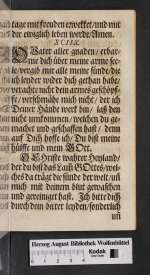 tage mit freuden erwecket/und mit
dir ewiglich leben werde/Amen.
XCIIX.
O Vater aller gnaden/erbar-
me dich über meine arme see-
le/vergib mir alle meine sünde/die
ich leider wider dich gethan habe/
verachte nicht dein armes geschöpf-
fe/verschmähe mich nicht/der ich
Deiner Hände werk bin/laß den
nicht umkommen/welchen du ge-
machet und geschaffen hast/denn
auf Dich hoffe ich/Du bist meine
hülffe und mein Gott.
O Christe wahrer Heyland/
der du bist das Lamm GOttes/wel-
ches da trägt die sünde der welt/
mich mit deinem blut gewaschen
und gereiniget hast. Ich bitte dich
durch dein bitter leyden/sonderlich
uñ
Herzog August Bibliothek Wolfenbüttel